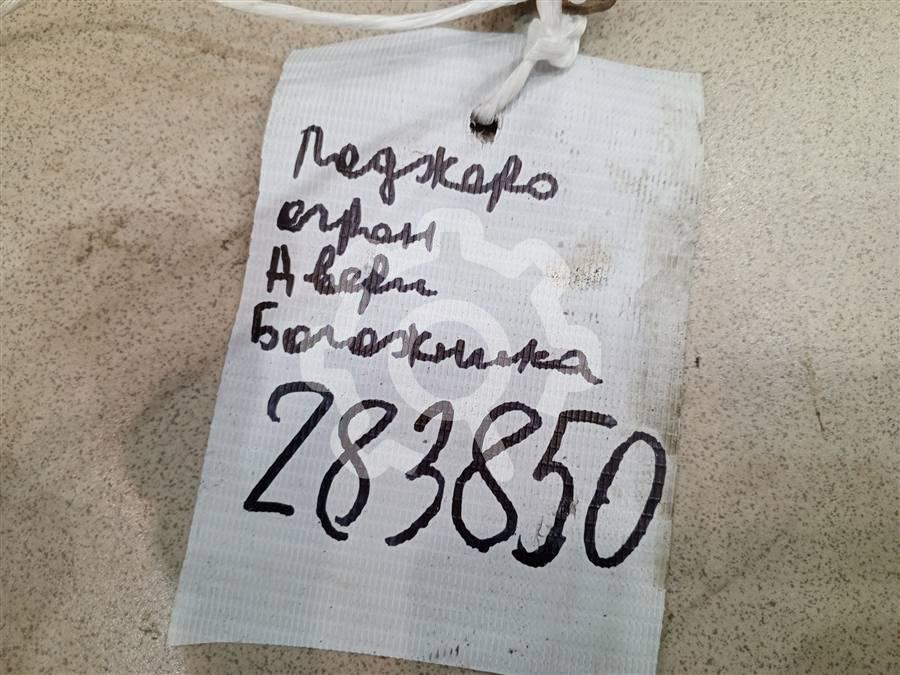 Паджаро
огран
Двери
Богожника
283850